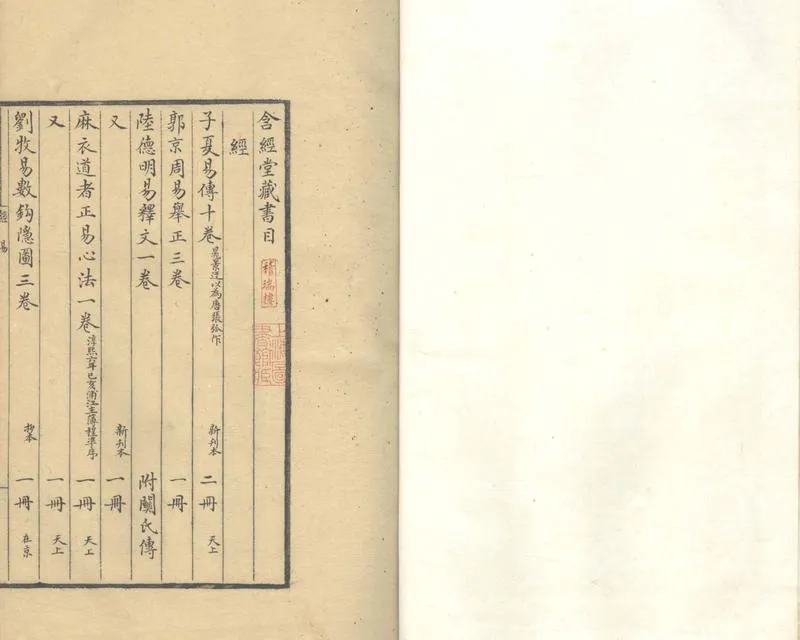 含經堂藏書目
稽瑞樓
上海圖書館藏
經
子夏易傳十卷 晁景迂以為唐張弧作 新刊本 二冊 天上
郭京周易舉正三卷 一冊
陸德明易釋文一卷 附關氏傳
又 新刊本 一冊
麻衣道者正易心法一卷 淳熙六年己亥浦江主簿程準序 一冊 天上
又 一冊 天上
劉牧易數鉤隱圖三卷 抄本 一冊 在京
經 易